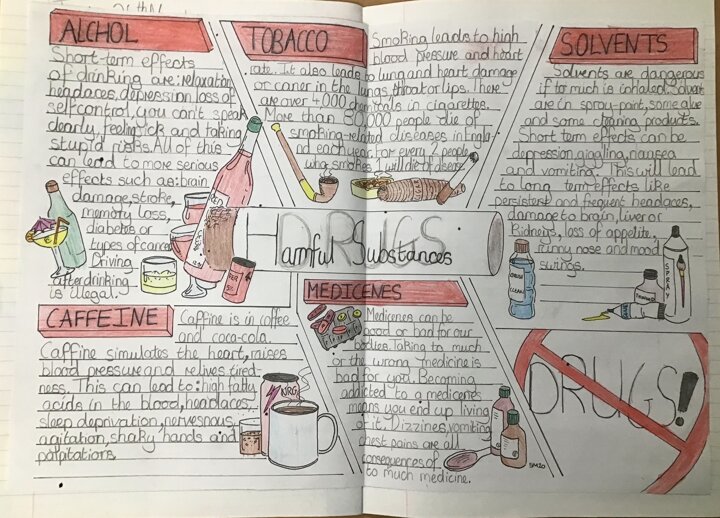 ALCHOL
Short-term effects
of drinking are: relaxation,
headaces, depression, loss of
selfcontrol, you can't speak
clearly, feeling sick and taking
stupid risks. All of this
can lead to more serious
effects such as: brain
damage, stroke,
memory loss,
diabetes or
types of cancer.
Driving
after drinking
is illegal.
TOBACCO
rate. It also leads
or cancer in the
are over 4000 chem
More than 80,000 people die of
smoking-related diseases in Engla-
nd each year, for every 2 people
who smokes 1 will die of disease.
Smoking leads to high
blood pressure and heart
to lung and heart damage
lungs, throat or lips. There
icals in cigarettes.
SOLVENTS
Solvents are dangerous
if to much is inhaled. Solvent
are in spray-paint, some glue
and some cleaning products.
Short term effects can be
depression, giggling, nausea
and vomiting. This will lead
to long term effects like
persistent and frequent headaces,
damage to brain, liver or
kidneys, loss of appetite,
runny nose and mood
swings.
DRUGS
Harmful Substances
CAFFEINE
Caffine is in coffee
and coca-cola.
Caffine simulates the heart, raises
blood pressure and relives tired-
ness. This can lead to: high fatty
acids in the blood, headaces,
sleep deprivation, nervesnous,
agitation, shaky hands and
palpitations.
NRG
MEDICENES
Medicenes can be
good or bad for our
bodies. Taking to much
or the wrong medicine is
bad for you. Becoming
addicted to a medicenes
means you end up living
of it. Dizzines, vomiting
chest pains are all
consequences of
to much medicine.
SM20
SPRAY
DRUGS!